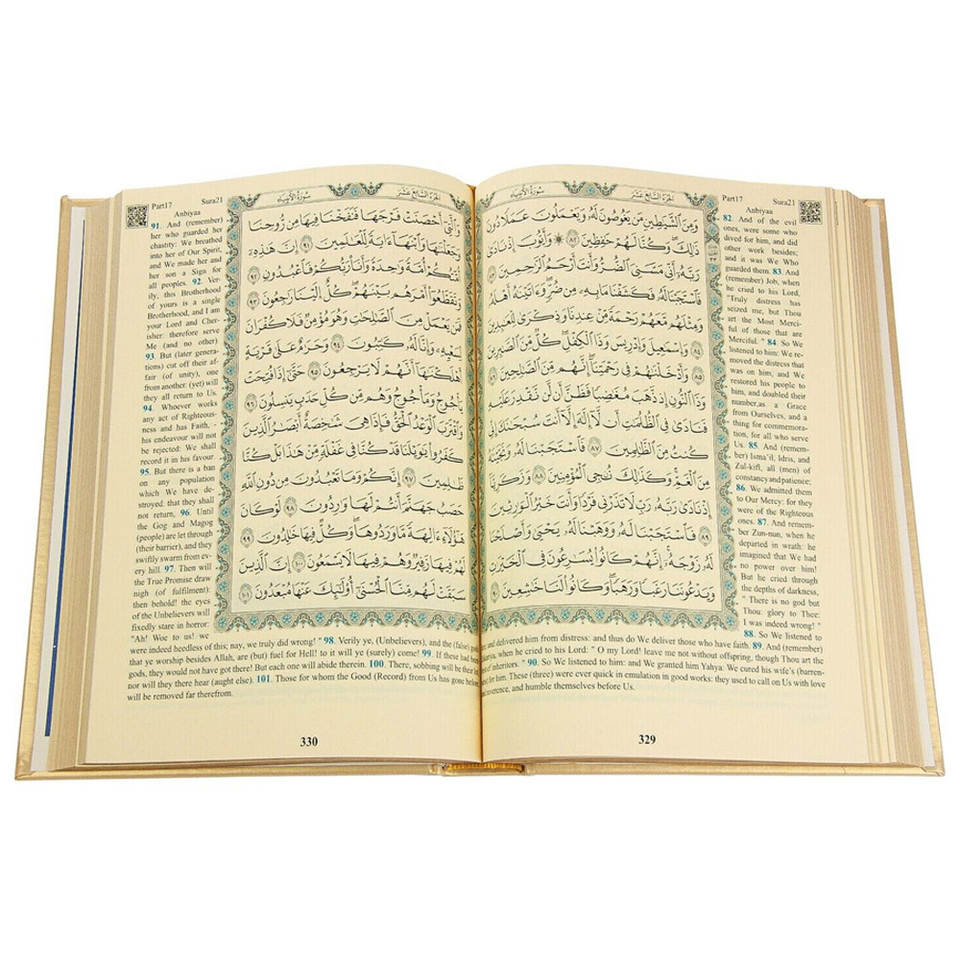 الجزء السابع عشر
سورة الأنبياء
وَمِنَ ٱلشَّيَـٰطِينِ مَن يَغُوصُونَ لَهُۥ وَيَعْمَلُونَ عَمَلًا دُونَ
ذَٰلِكَ وَكُنَّا لَهُمْ حَـٰفِظِينَ ٨٢ ۞ وَأَيُّوبَ إِذْ نَادَىٰ
رَبَّهُۥٓ أَنِّى مَسَّنِىَ ٱلضُّرُّ وَأَنتَ أَرْحَمُ ٱلرَّٰحِمِينَ ٨٣
فَٱسْتَجَبْنَا لَهُۥ فَكَشَفْنَا مَا بِهِۦ مِن ضُرٍّ وَءَاتَيْنَـٰهُ أَهْلَهُۥ
وَمِثْلَهُم مَّعَهُمْ رَحْمَةً مِّنْ عِندِنَا وَذِكْرَىٰ لِلْعَـٰبِدِينَ
٨٤ وَإِسْمَـٰعِيلَ وَإِدْرِيسَ وَذَا ٱلْكِفْلِ كُلٌّ مِّنَ ٱلصَّـٰبِرِينَ
٨٥ وَأَدْخَلْنَـٰهُمْ فِى رَحْمَتِنَآ إِنَّهُم مِّنَ ٱلصَّـٰلِحِينَ ٨٦
وَذَا ٱلنُّونِ إِذ ذَّهَبَ مُغَـٰضِبًا فَظَنَّ أَن لَّن نَّقْدِرَ عَلَيْهِ
فَنَادَىٰ فِى ٱلظُّلُمَـٰتِ أَن لَّآ إِلَـٰهَ إِلَّآ أَنتَ سُبْحَـٰنَكَ إِنِّى
كُنتُ مِنَ ٱلظَّـٰلِمِينَ ٨٧ فَٱسْتَجَبْنَا لَهُۥ وَنَجَّيْنَـٰهُ
مِنَ ٱلْغَمِّ وَكَذَٰلِكَ نُـۨجِى ٱلْمُؤْمِنِينَ ٨٨ وَزَكَرِيَّآ
إِذْ نَادَىٰ رَبَّهُۥ رَبِّ لَا تَذَرْنِى فَرْدًا وَأَنتَ خَيْرُ ٱلْوَٰرِثِينَ
٨٩ فَٱسْتَجَبْنَا لَهُۥ وَوَهَبْنَا لَهُۥ يَحْيَىٰ وَأَصْلَحْنَا
لَهُۥ زَوْجَهُۥٓ إِنَّهُمْ كَانُوا۟ يُسَـٰرِعُونَ فِى ٱلْخَيْرَٰتِ
وَيَدْعُونَنَا رَغَبًا وَرَهَبًا وَكَانُوا۟ لَنَا خَـٰشِعِينَ ٩٠
Part17 Sura21
Anbiyaa
82. And of the evil
ones, were some who
dived for him, and did
other work besides;
and it was We Who
guarded them. 83. And
(remember) Job, when
he cried to his Lord,
"Truly distress has
seized me, but Thou
art the Most Merci-
ful of those that are
Merciful. " 84. So We
listened to him: We re-
moved the distress that
was on him, and We
restored his people to
him, and doubled their
number,as a Grace
from Ourselves, and a
thing for commemora-
tion, for all who serve
Us. 85. And (remem-
ber) Isma'il, Idris, and
Zul-kifl, all (men) of
constancy and patience;
86. We admitted them
to Our Mercy: for they
were of the Righteous
ones. 87. And remem-
ber Zun-nun, when he
departed in wrath: he
imagined that We had
no power over him!
But he cried through
the depths of darkness,
" There is no god but
Thou: glory to Thee:
I was indeed wrong! "
88. So We listened to
and delivered him from distress: and thus do We deliver those who have faith. 89. And (remember)
when he cried to his Lord: " O my Lord! leave me not without offspring, though Thou art the
of inheritors. " 90. So We listened to him: and We granted him Yahya: We cured his wife's (barren-
for him. These (three) were ever quick in emulation in good works: they used to call on Us with love
and humble themselves before Us.
329
الجزء السابع عشر
سورة الأنبياء
وَٱلَّتِىٓ أَحْصَنَتْ فَرْجَهَا فَنَفَخْنَا فِيهَا مِن رُّوحِنَا
وَجَعَلْنَـٰهَا وَٱبْنَهَآ ءَايَةً لِّلْعَـٰلَمِينَ ٩١ إِنَّ هَـٰذِهِۦٓ
أُمَّتُكُمْ أُمَّةً وَٰحِدَةً وَأَنَا۠ رَبُّكُمْ فَٱعْبُدُونِ ٩٢
وَتَقَطَّعُوٓا۟ أَمْرَهُم بَيْنَهُمْ كُلٌّ إِلَيْنَا رَٰجِعُونَ ٩٣
فَمَن يَعْمَلْ مِنَ ٱلصَّـٰلِحَـٰتِ وَهُوَ مُؤْمِنٌ فَلَا كُفْرَانَ
لِسَعْيِهِۦ وَإِنَّا لَهُۥ كَـٰتِبُونَ ٩٤ وَحَرَٰمٌ عَلَىٰ قَرْيَةٍ
أَهْلَكْنَـٰهَآ أَنَّهُمْ لَا يَرْجِعُونَ ٩٥ حَتَّىٰٓ إِذَا فُتِحَتْ
يَأْجُوجُ وَمَأْجُوجُ وَهُم مِّن كُلِّ حَدَبٍ يَنسِلُونَ ٩٦
وَٱقْتَرَبَ ٱلْوَعْدُ ٱلْحَقُّ فَإِذَا هِىَ شَـٰخِصَةٌ أَبْصَـٰرُ ٱلَّذِينَ
كَفَرُوا۟ يَـٰوَيْلَنَا قَدْ كُنَّا فِى غَفْلَةٍ مِّنْ هَـٰذَا بَلْ كُنَّا
ظَـٰلِمِينَ ٩٧ إِنَّكُمْ وَمَا تَعْبُدُونَ مِن دُونِ ٱللَّهِ
حَصَبُ جَهَنَّمَ أَنتُمْ لَهَا وَٰرِدُونَ ٩٨ لَوْ كَانَ
هَـٰٓؤُلَآءِ ءَالِهَةً مَّا وَرَدُوهَا وَكُلٌّ فِيهَا خَـٰلِدُونَ ٩٩
لَهُمْ فِيهَا زَفِيرٌ وَهُمْ فِيهَا لَا يَسْمَعُونَ ١٠٠ إِنَّ ٱلَّذِينَ
سَبَقَتْ لَهُم مِّنَّا ٱلْحُسْنَىٰٓ أُو۟لَـٰٓئِكَ عَنْهَا مُبْعَدُونَ ١٠١
Part17 Sura21
Anbiyaa
91. And (remember)
her who guarded her
chastity: We breathed
into her of Our Spirit,
and We made her and
her son a Sign for
all peoples. 92. Ver-
ily, this Brotherhood
of yours is a single
Brotherhood, and I am
your Lord and Cher-
isher: therefore serve
Me (and no other)
93. But (later genera-
tions) cut off their af-
fair (of unity), one
from another: (yet) will
they all return to Us.
94. Whoever works
any act of Righteous-
ness and has Faith, -
his endeavour will not
be rejected: We shall
record it in his favour.
95. But there is a ban
on any population
which We have de-
stroyed. that they shall
not return, 96. Until
the Gog and Magog
(people) are let through
(their barrier), and they
swiftly swarm from ev-
ery hill. 97. Then will
the True Promise draw
nigh (of fulfilment):
then behold! the eyes
of the Unbelievers will
fixedly stare in horror:
"Ah! Woe to us! we
were indeed heedless of this; nay, we truly did wrong! " 98. Verily ye, (Unbelievers), and the (false)
that ye worship besides Allah, are (but) fuel for Hell! to it will ye (surely) come! 99. If these had been
gods, they would not have got there! But each one will abide therein. 100. There, sobbing will be their
nor will they there hear (aught else). 101. Those for whom the Good (Record) from Us has gone before
will be removed far therefrom.
330